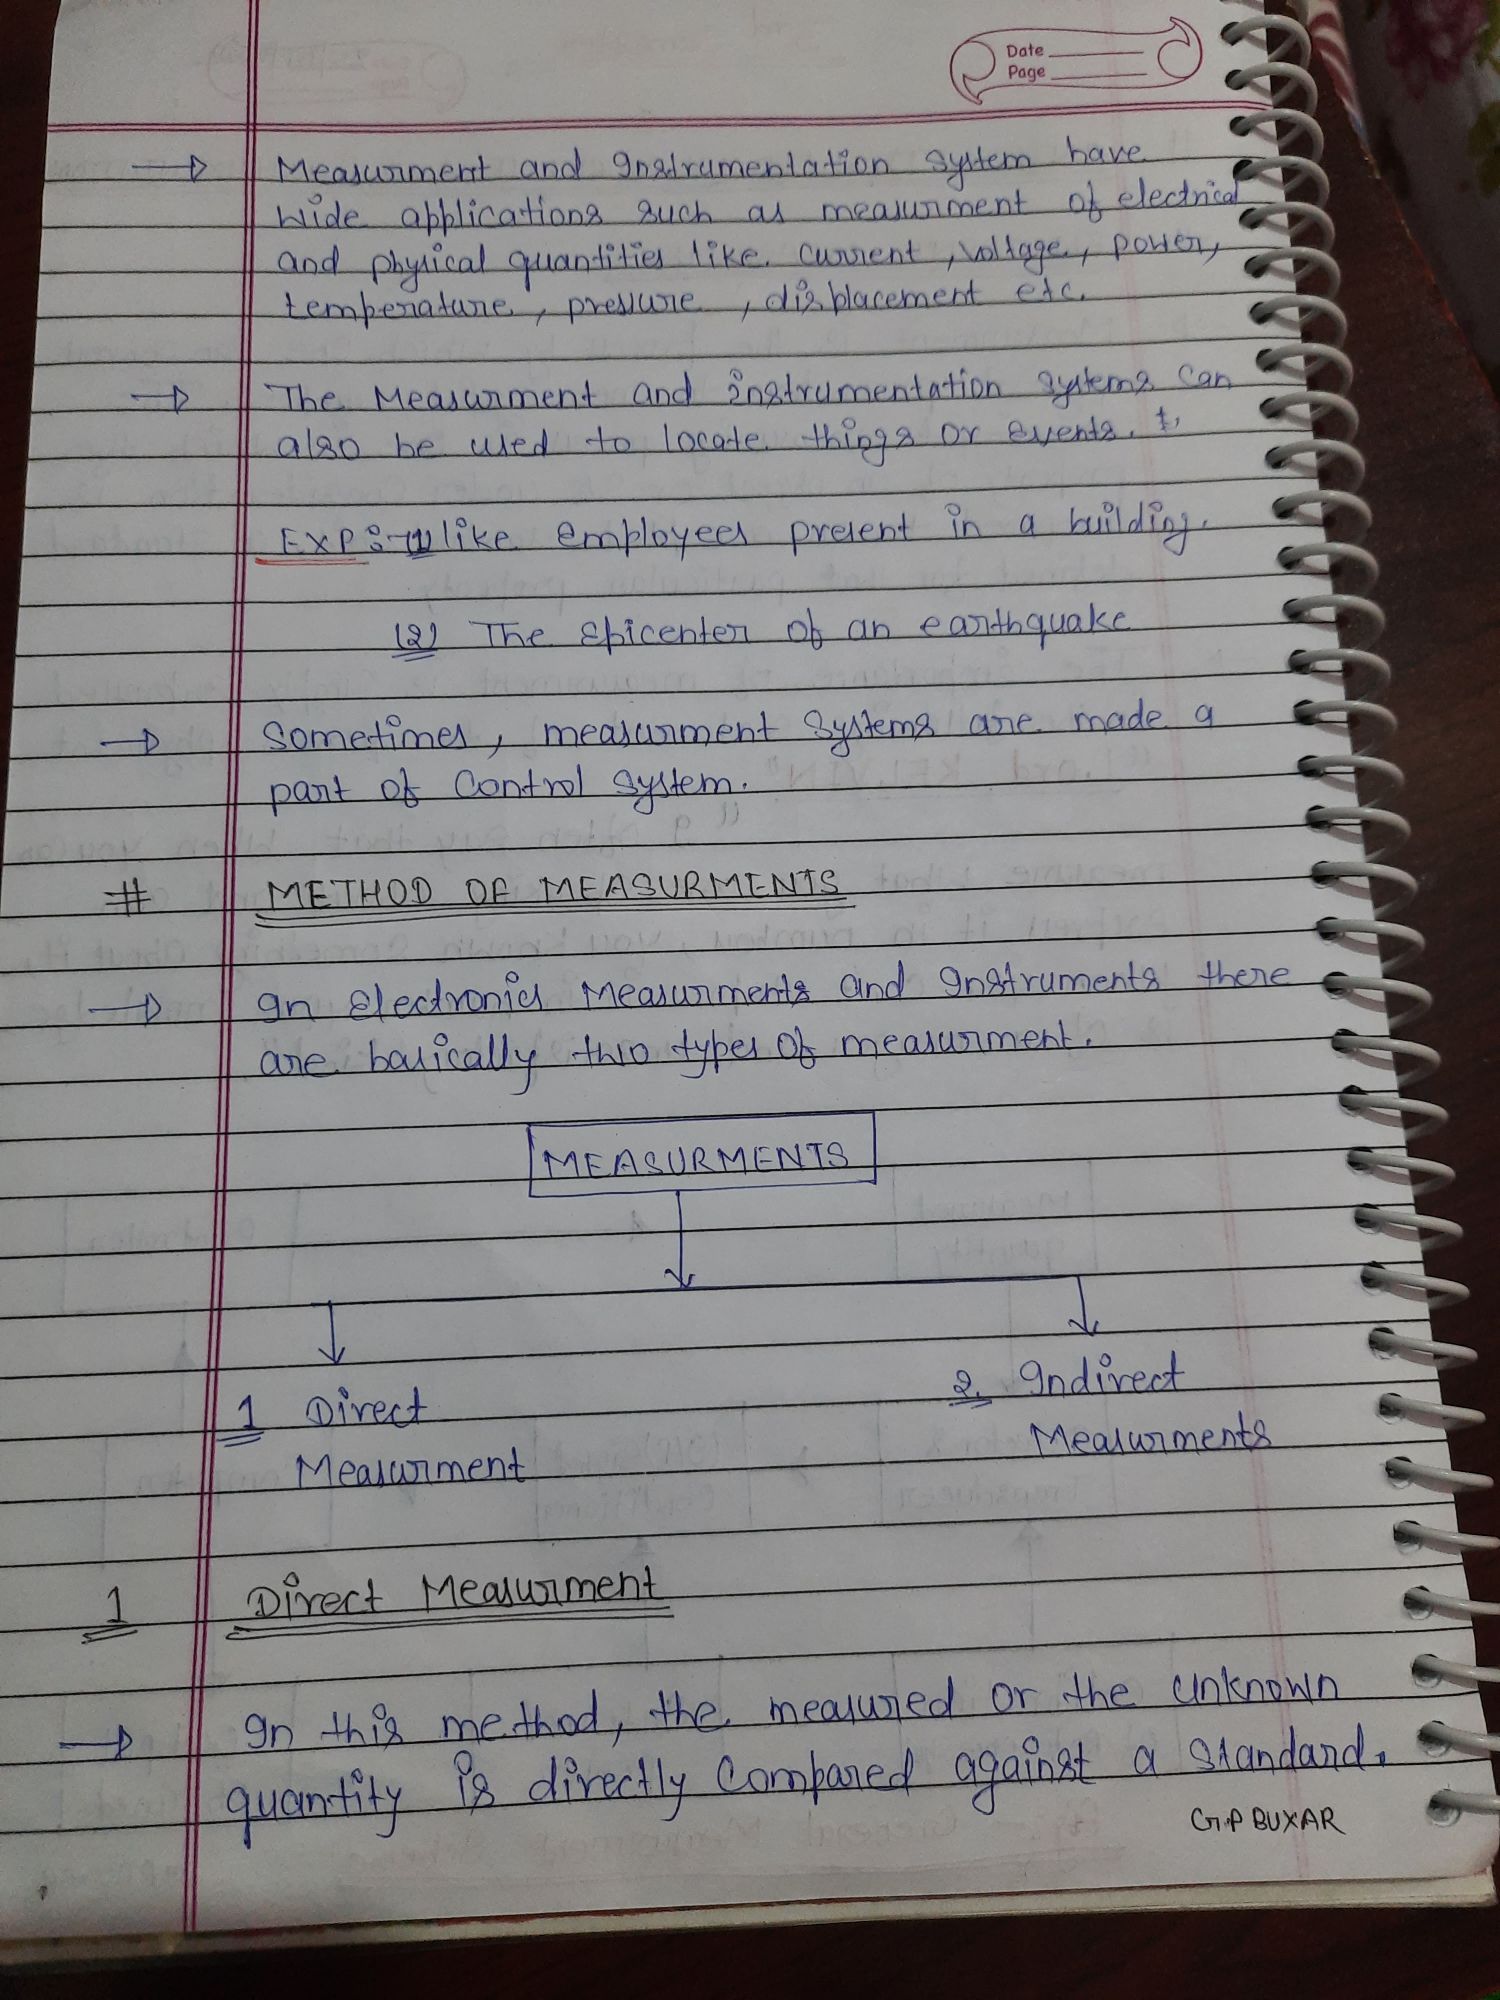 Date
Page
→ Measurment and Instrumentation system have
wide applications such as measurment of electrical
and physical quantities like current, voltage, power,
temperature, pressure, displacement etc.
→ The Measurment and instrumentation systems can
also be used to locate things or events.
EXP:-(1) like employees present in a building.
(2) The Epicenter of an earthquake
→ Sometimes, measurment systems are made a
part of control system.
# METHOD OF MEASURMENTS
→ In Electronics Measurments and Instruments there
are basically two types of measurment.
MEASURMENTS
1 Direct
Measurment
2. Indirect
Measurments
1 Direct Measurment
→ In this method, the measured or the unknown
quantity is directly compared against a standard.
G.P BUXAR